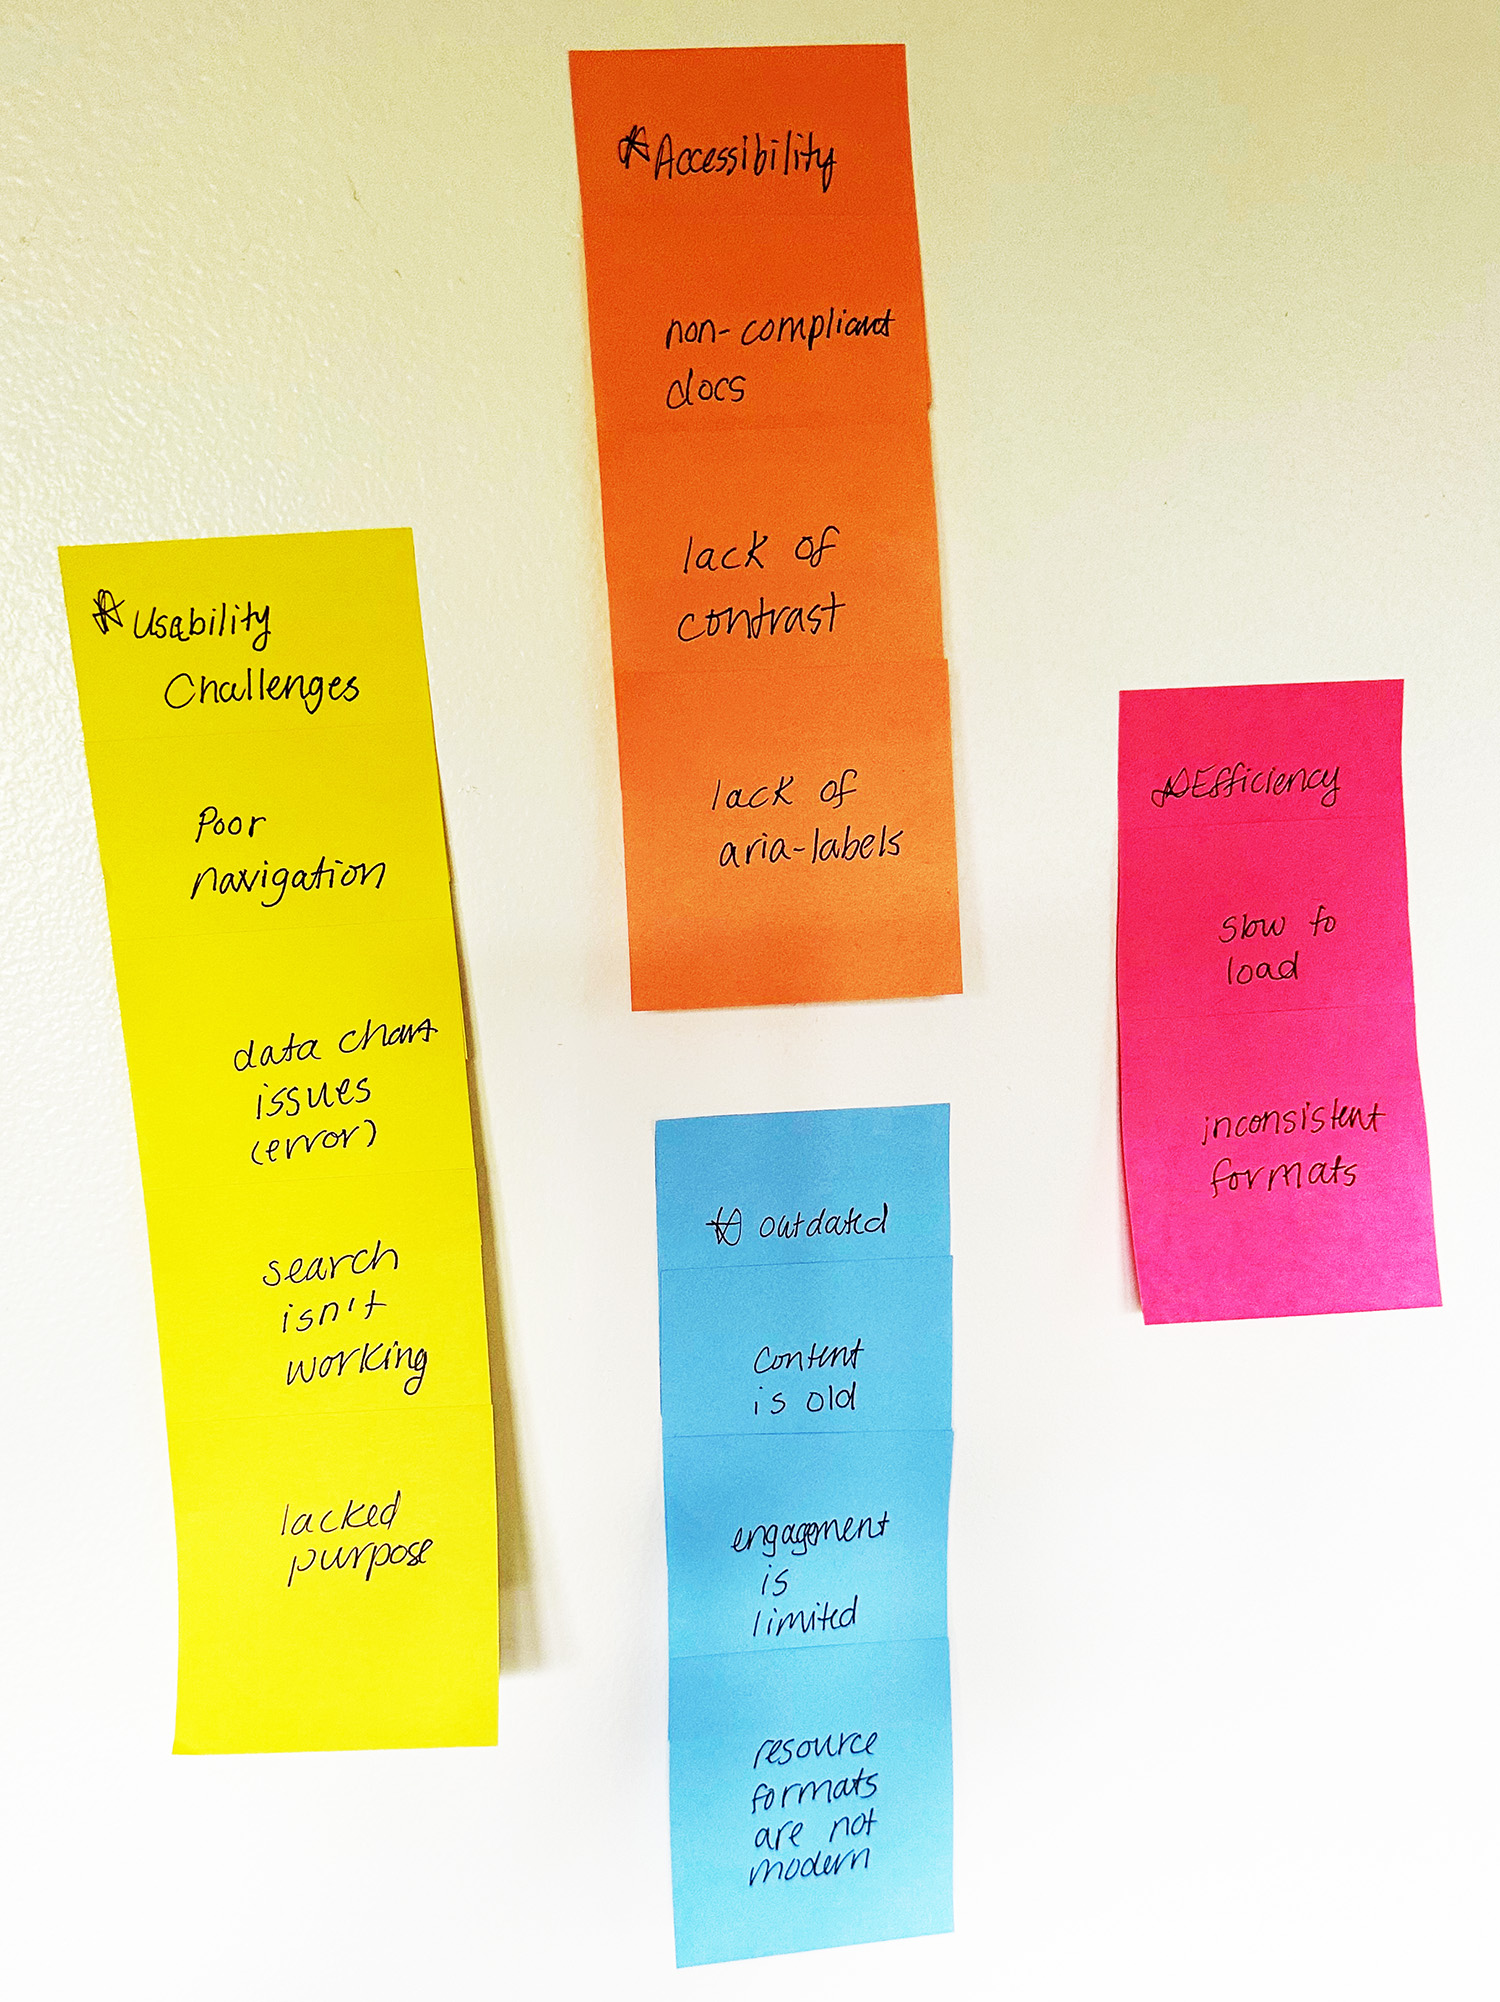 Usability
Challenges
Poor
navigation
data chart
issues
(error)
search
isn't
working
lacked
purpose
Accessibility
non-compliant
docs
lack of
contrast
lack of
aria-labels
outdated
Content
is old
engagement
is
limited
resource
formats
are not
modern
Efficiency
slow to
load
inconsistent
formats